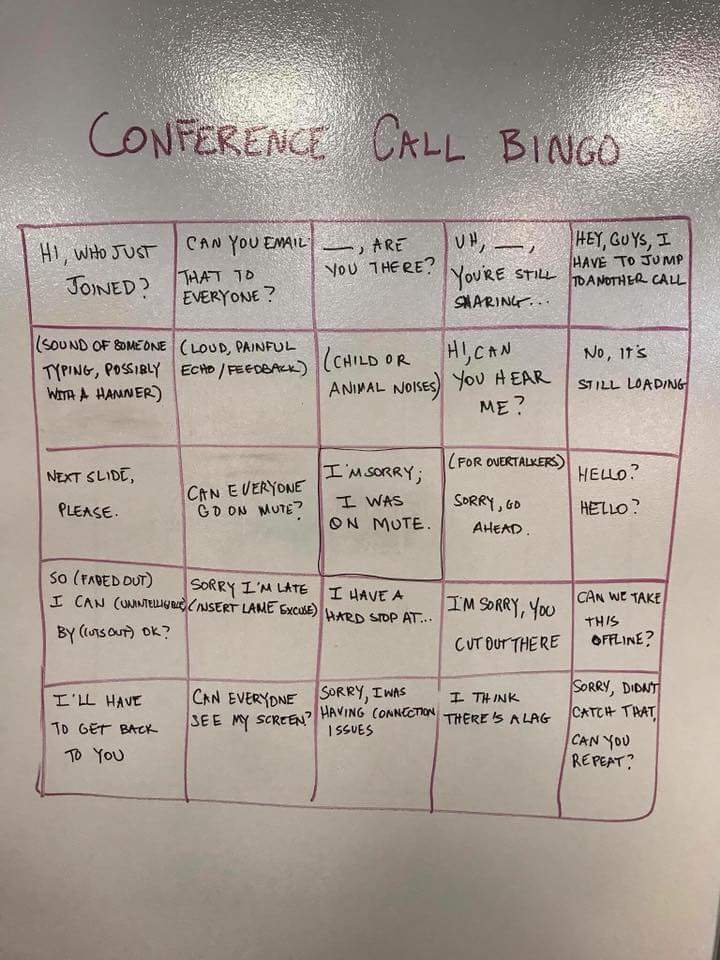 CONFERENCE CALL BINGO
HI, WHO JUST
JOINED?
CAN YOU EMAIL
THAT TO
EVERYONE?
__, ARE
YOU THERE?
UH, __,
YOU'RE STILL
SHARING...
HEY, GUYS, I
HAVE TO JUMP
TO ANOTHER CALL
(SOUND OF SOMEONE
TYPING, POSSIBLY
WITH A HAMMER)
(LOUD, PAINFUL
ECHO/FEEDBACK)
(CHILD OR
ANIMAL NOISES)
HI, CAN
YOU HEAR
ME?
NO, IT'S
STILL LOADING
NEXT SLIDE,
PLEASE.
CAN EVERYONE
GO ON MUTE?
I'M SORRY;
I WAS
ON MUTE.
(FOR OVERTALKERS)
SORRY, GO
AHEAD.
HELLO?
HELLO?
SO (FADED OUT)
I CAN (UNINTELLIGIBLE)
BY (CUTS OUT) OK?
SORRY I'M LATE
(INSERT LAME EXCUSE)
I HAVE A
HARD STOP AT...
I'M SORRY, YOU
CUT OUT THERE
CAN WE TAKE
THIS
OFFLINE?
I'LL HAVE
TO GET BACK
TO YOU
CAN EVERYONE
SEE MY SCREEN?
SORRY, I WAS
HAVING CONNECTION
ISSUES
I THINK
THERE'S A LAG
SORRY, DIDN'T
CATCH THAT,
CAN YOU
REPEAT?